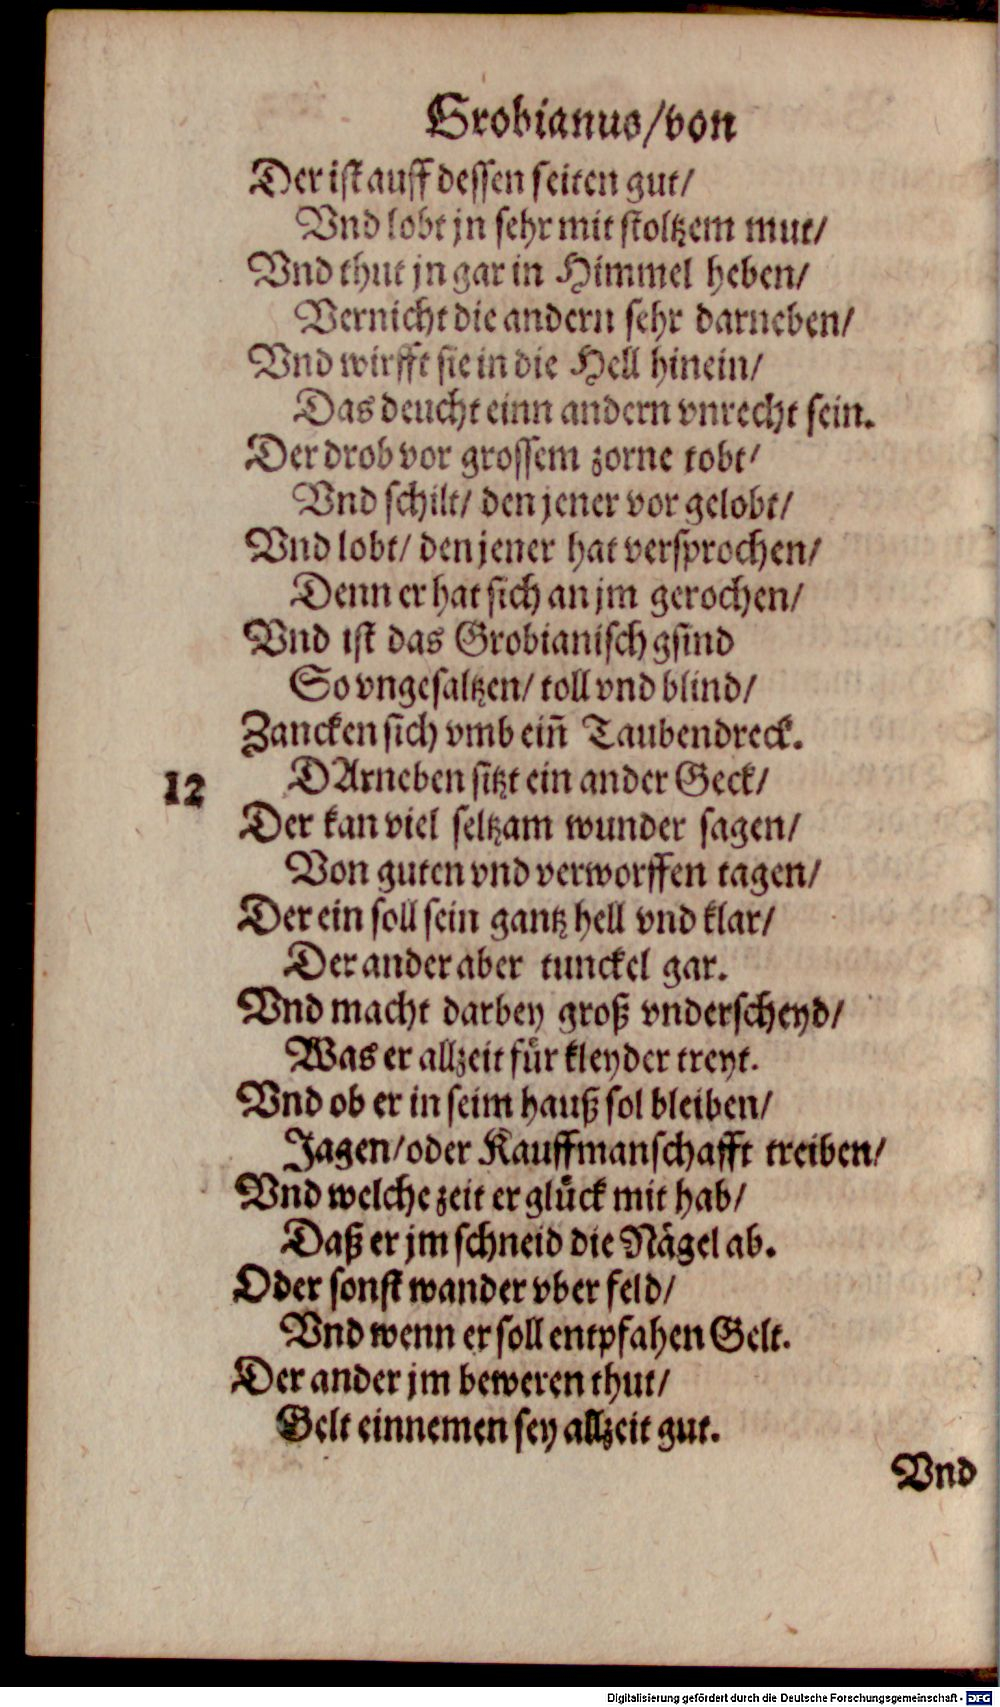 Grobianus/von
Der ist auff dessen seiten gut/
Vnd lobt jn sehr mit stoltzem mut/
Vnd thut jn gar in Himmel heben/
Vernicht die andern sehr darneben/
Vnd wirfft sie in die Hell hinein/
Das deucht einn andern vnrecht sein.
Der drob vor grossem zorne tobt/
Vnd schilt/ den jener vor gelobt/
Vnd lobt/ den jener hat versprochen/
Denn er hat sich an jm gerochen/
Vnd ist das Grobianisch gsind
So vngesaltzen/ toll vnd blind/
Zancken sich vmb ein̄ Taubendreck.
12 DArneben sitzt ein ander Geck/
Der kan viel seltzam wunder sagen/
Von guten vnd verworffen tagen/
Der ein soll sein gantz hell vnd klar/
Der ander aber tunckel gar.
Vnd macht darbey groß vnderscheyd/
Was er allzeit für kleyder treyt.
Vnd ob er in seim hauß sol bleiben/
Jagen/oder Kauffmanschafft treiben/
Vnd welche zeit er glück mit hab/
Daß er jm schneid die Nägel ab.
Oder sonst wander vber feld/
Vnd wenn er soll entpfahen Gelt.
Der ander jm beweren thut/
Gelt einnemen sey allzeit gut.
Vnd
Digitalisierung gefördert durch die Deutsche Forschungsgemeinschaft - DFG